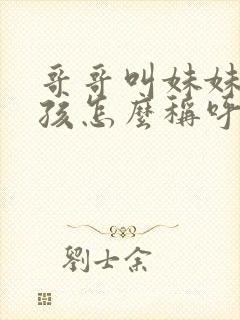 哥哥叫妹妹
孩怎麼稱呼
劉士余